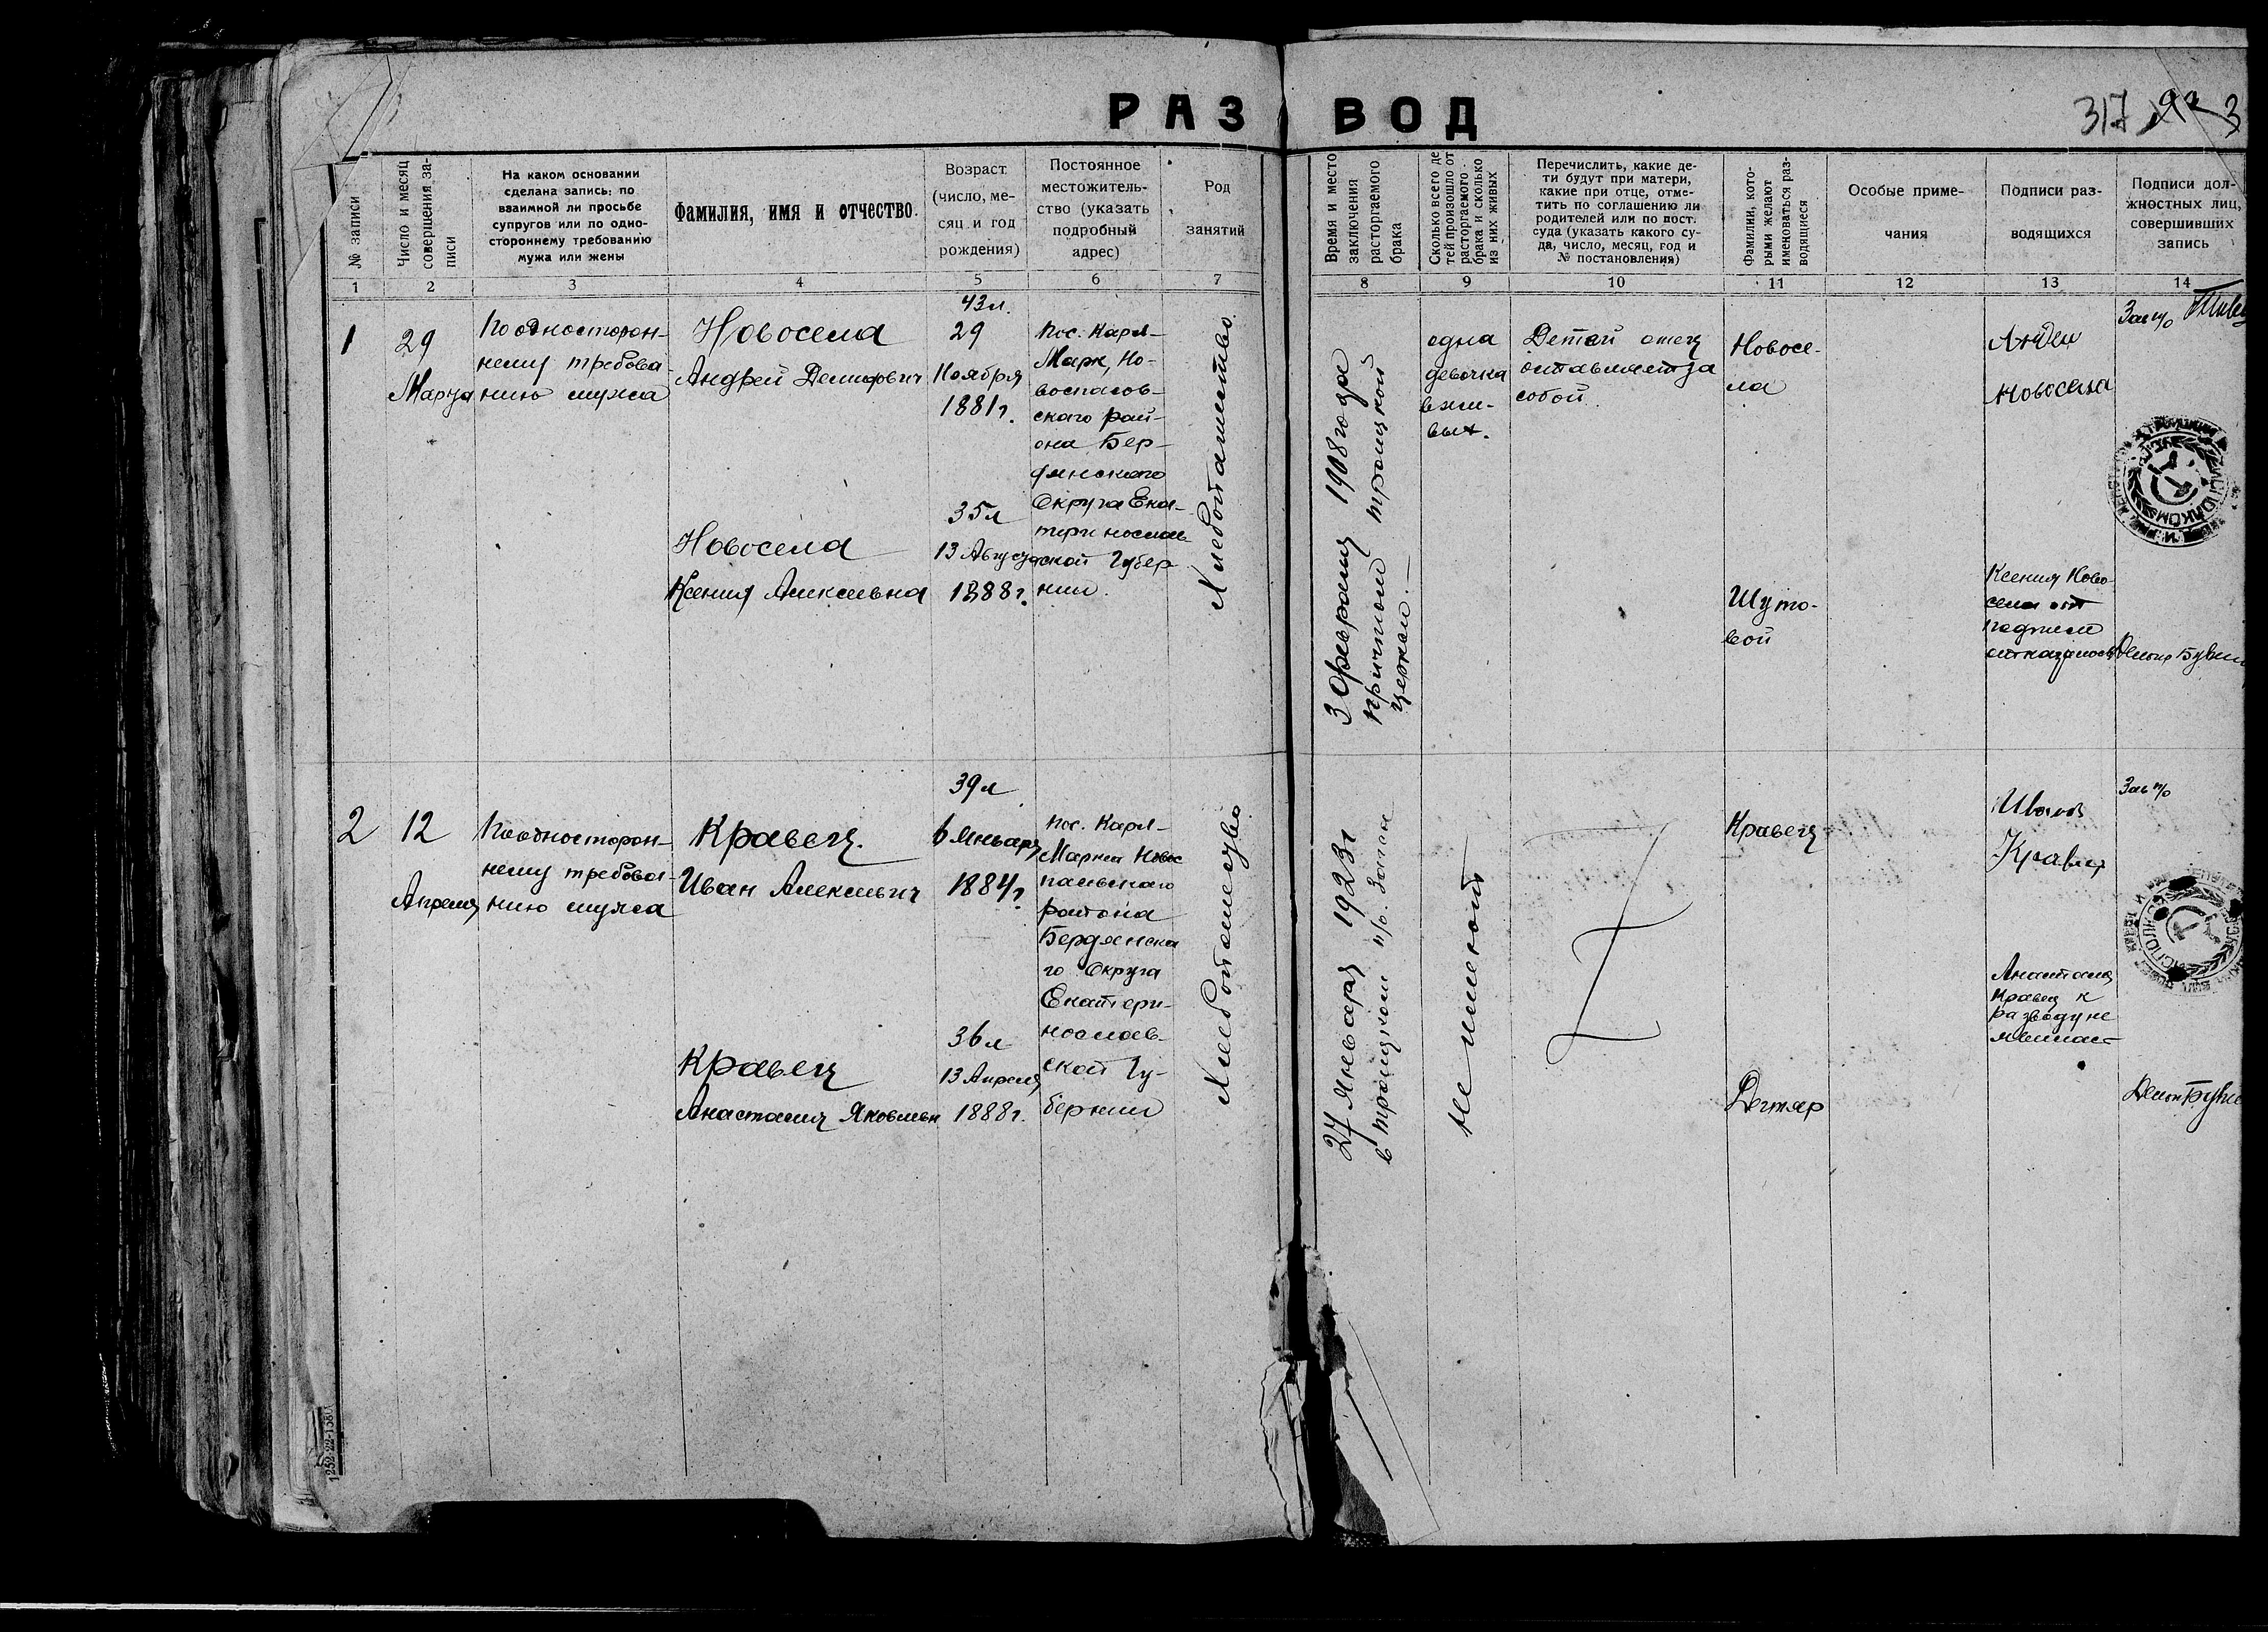 РАЗВОД
317
№ записи
Число и месяц
совершения за-
писи
На каком основании
сделана запись: по
взаимной ли просьбе
супругов или по одно-
стороннему требованию
мужа или жены
Фамилия, имя и отчество.
Возраст
(число, ме-
сяц и год
рождения)
Постоянное
местожитель-
ство (указать
подробный
адрес)
Род
занятий
Время и место
заключения
расторгаемого
брака
Сколько всего де
тей произошло от
расторгаемого
брака и сколько
из них живых
Перечислить, какие де-
ти будут при матери,
какие при отце, отме-
тить по соглашению ли
родителей или по пост.
суда (указать какого су-
да, число, месяц, год и
№ постановления)
Фамилии, кото-
рыми желают
именоваться раз-
водящиеся
Особые приме-
чания
Подписи раз-
водящихся
Подписи дол-
жностных лиц,
совершивших
запись
1 2 3 4 5 6 7 8 9 10 11 12 13 14
1
29
Марта
По односторон-
нему требова-
нию мужа
Новосела
Андрей Демидович
43 л.
29
Ноября
1881 г.
Новосела
Ксения Алексеевна
35 л
13 Август
1888 г.
пос. Карл-
Марк, Но-
воспасов-
ского рай-
она Бер-
дянского
Округа Ека-
теринослав
ской Губер-
нии.
Хлебопашество
3 февраля 1908 года
причтом троицкой
церкви.
одна
девочка
в жи-
вых.
Детей отец
оставляет за
собой.
Новосе-
ла
Шуто-
вой
Андрей
Новосела
Ксения Ново-
села от
подписи
отказалась
Зав п/о
2
12
Апреля
По односторон-
нему требова-
нию мужа
Кравец.
Иван Алексеевич
39 л
6 Января
1884 г.
Кравец
Анастасия Яковлевн
36 л
13 Апреля
1888 г.
пос. Карл-
Маркса Новос
пасовского
района
Бердянска
го Округа
Екатери-
нослав-
ской Гу-
бернии
Хлебопашество
27 Января 1923 г
в троицком п/о. Загсом
не имеют
Кравец
Дегтяр
Иван
Кравец
Анастасия
Кравец к
разводу не
явилась
Зав п/о
1252-22-1580